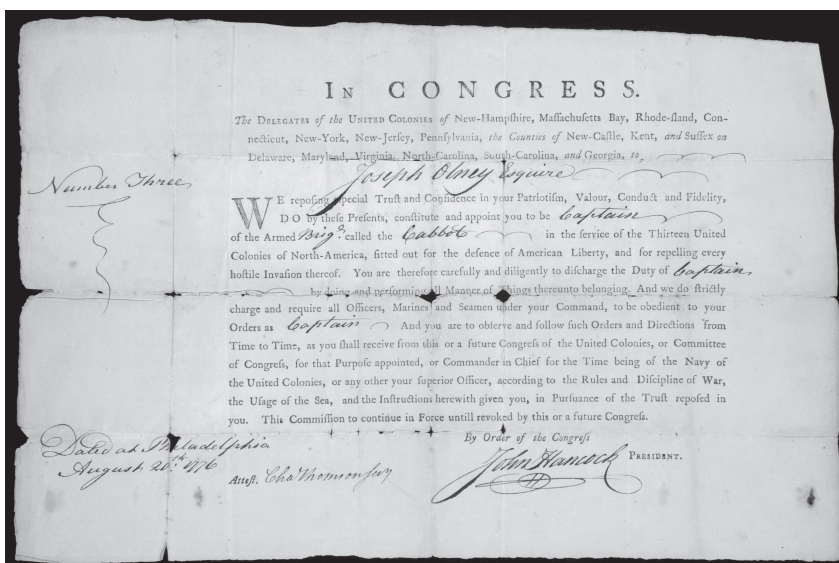 IN CONGRESS.
The DELEGATES of the UNITED COLONIES of New-Hampſhire, Maſſachuſetts Bay, Rhode-Iſland, Con-
necticut, New-York, New-Jerſey, Pennſylvania, the Counties of New-Caſtle, Kent, and Suſſex on
Delaware, Maryland, Virginia, North-Carolina, South-Carolina, and Georgia, to
Joseph Olney Esquire
Number Three
WE repoſing eſpecial Truſt and Confidence in your Patriotiſm, Valour, Conduct and Fidelity,
DO by theſe Preſents, conſtitute and appoint you to be Captain
of the Armed Brign. called the Cabbot in the ſervice of the Thirteen United
Colonies of North-America, fitted out for the defence of American Liberty, and for repelling every
hoſtile Invaſion thereof. You are therefore carefully and diligently to diſcharge the Duty of Captain
by doing and performing all Manner of Things thereunto belonging. And we do ſtrictly
charge and require all Officers, Marines and Seamen under your Command, to be obedient to your
Orders as Captain And you are to obſerve and follow ſuch Orders and Directions from
Time to Time, as you ſhall receive from this or a future Congreſs of the United Colonies, or Committee
of Congreſs, for that Purpoſe appointed, or Commander in Chief for the Time being of the Navy of
the United Colonies, or any other your ſuperior Officer, according to the Rules and Diſcipline of War,
the Uſage of the Sea, and the Inſtructions herewith given you, in Purſuance of the Truſt repoſed in
you. This Commiſſion to continue in Force untill revoked by this or a future Congreſs.
Dated at Philadelphia
August 20th. 1776
By Order of the Congreſs
John Hancock PRESIDENT.
Atteſt. Cha Thomson Secy